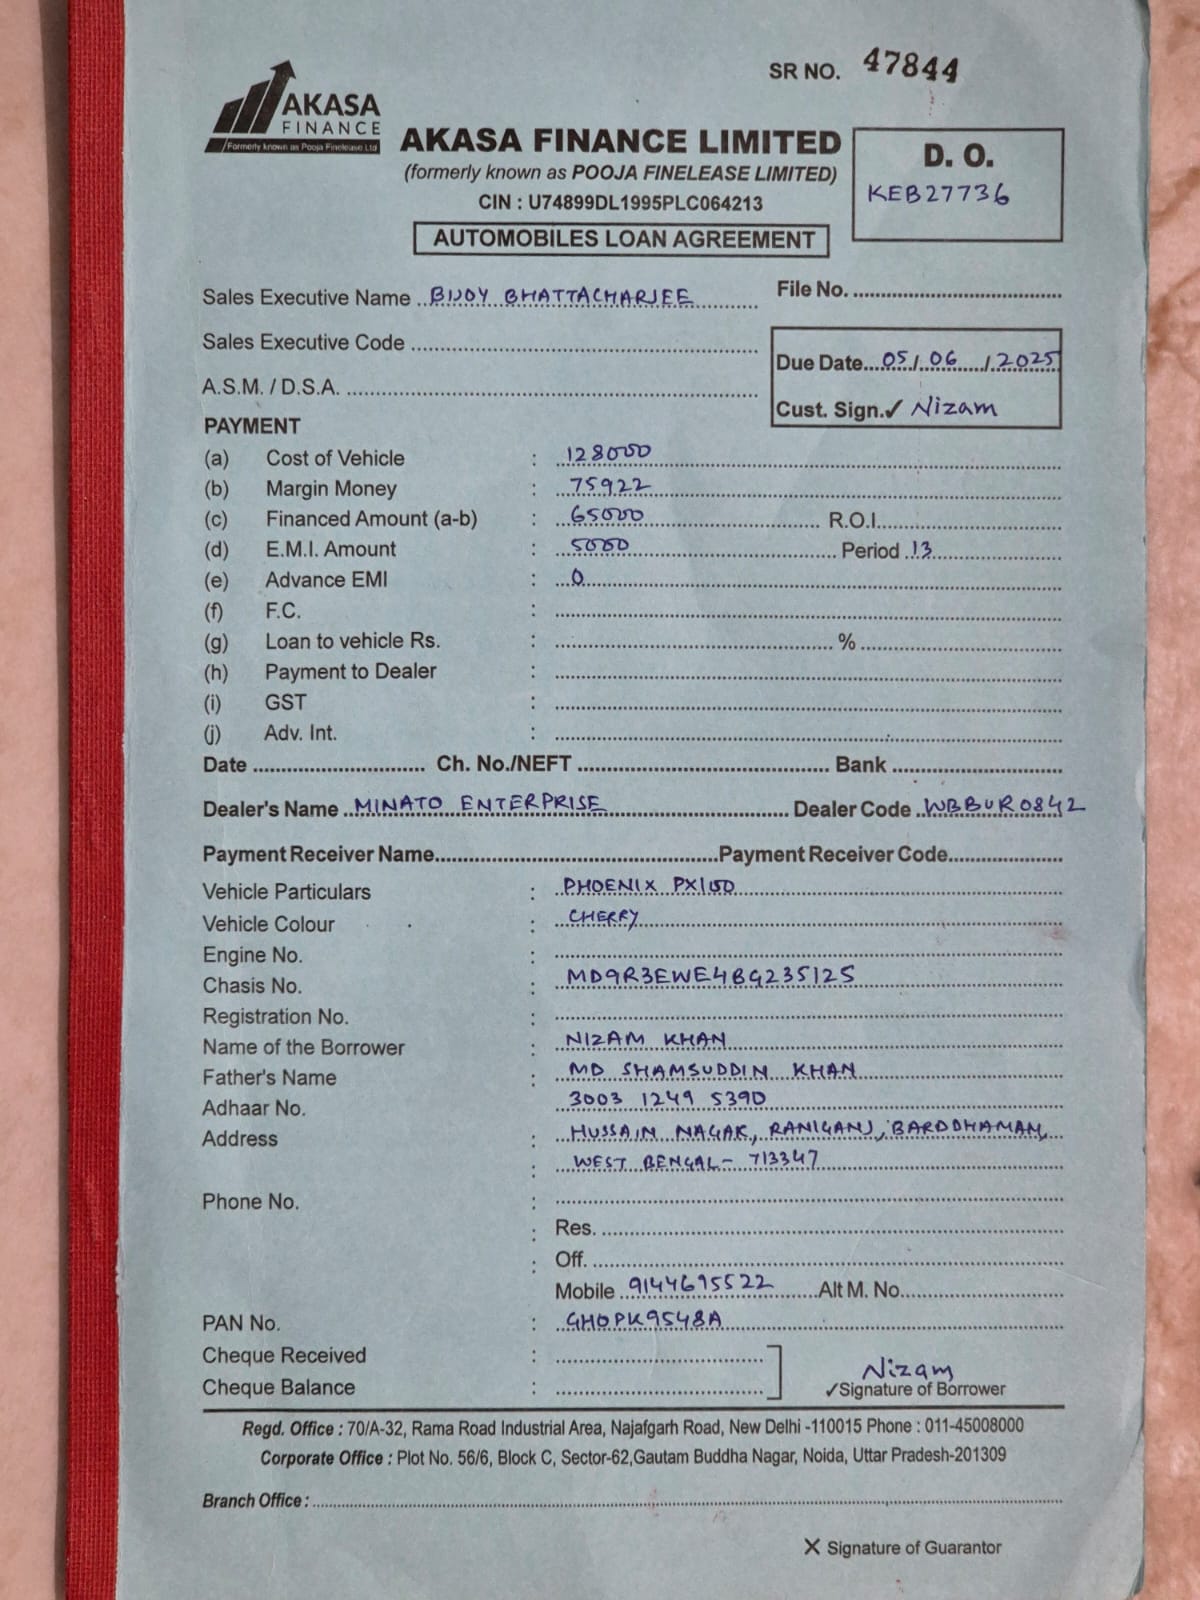 SR NO. 47844
AKASA
FINANCE
Formerly known as Pooja Finelease Ltd
AKASA FINANCE LIMITED
(formerly known as POOJA FINELEASE LIMITED)
CIN : U74899DL1995PLC064213
AUTOMOBILES LOAN AGREEMENT
D. O.
KEB27736
Sales Executive Name BIJOY BHATTACHARJEE
File No.
Sales Executive Code
A.S.M. / D.S.A.
Due Date 05/06/2025
Cust. Sign.✓ Nizam
PAYMENT
(a) Cost of Vehicle : 128000
(b) Margin Money : 75922
(c) Financed Amount (a-b) : 65000 R.O.I.
(d) E.M.I. Amount : 5000 Period 13
(e) Advance EMI : 0
(f) F.C. :
(g) Loan to vehicle Rs. : %
(h) Payment to Dealer :
(i) GST :
(j) Adv. Int. :
Date Ch. No./NEFT Bank
Dealer's Name MINATO ENTERPRISE Dealer Code WBBUR0842
Payment Receiver Name Payment Receiver Code
Vehicle Particulars : PHOENIX PX100
Vehicle Colour : CHERRY
Engine No. :
Chasis No. : MD9R3EWE4BG235125
Registration No. :
Name of the Borrower : NIZAM KHAN
Father's Name : MD SHAMSUDDIN KHAN
Adhaar No. 3003 1249 5390
Address : HUSSAIN NAGAR, RANIGANJ, BARDDHAMAN,
: WEST BENGAL - 713347
Phone No. :
: Res.
: Off.
Mobile 9144695522 Alt M. No.
PAN No. : GHOPK9548A
Cheque Received :
Cheque Balance :
Nizam
✓Signature of Borrower
Regd. Office : 70/A-32, Rama Road Industrial Area, Najafgarh Road, New Delhi -110015 Phone : 011-45008000
Corporate Office : Plot No. 56/6, Block C, Sector-62,Gautam Buddha Nagar, Noida, Uttar Pradesh-201309
Branch Office :
X Signature of Guarantor